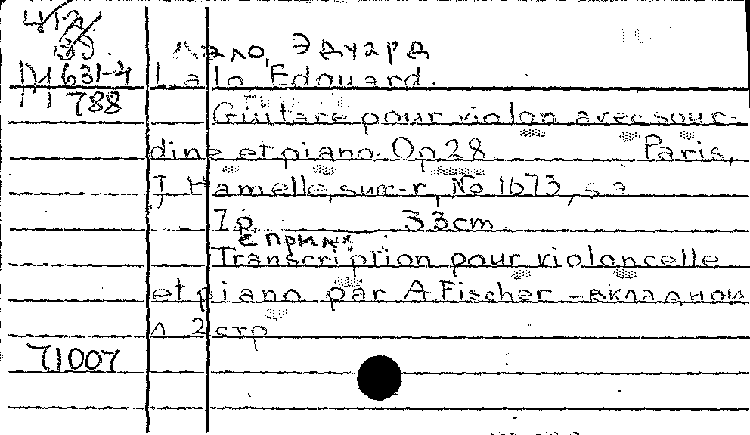 Лало, Эдуард
М 631-4 Lalo Edouard.
788 Guitare pour violon avec sour-
dine et piano. Op. 28 Paris,
J. Hamelle, succ-r, No 1673, s.a
7 p. 33 cm
с прилож.
Transcription pour violoncelle
et piano par A. Fischer – вкладной
л. 2 стр
71007